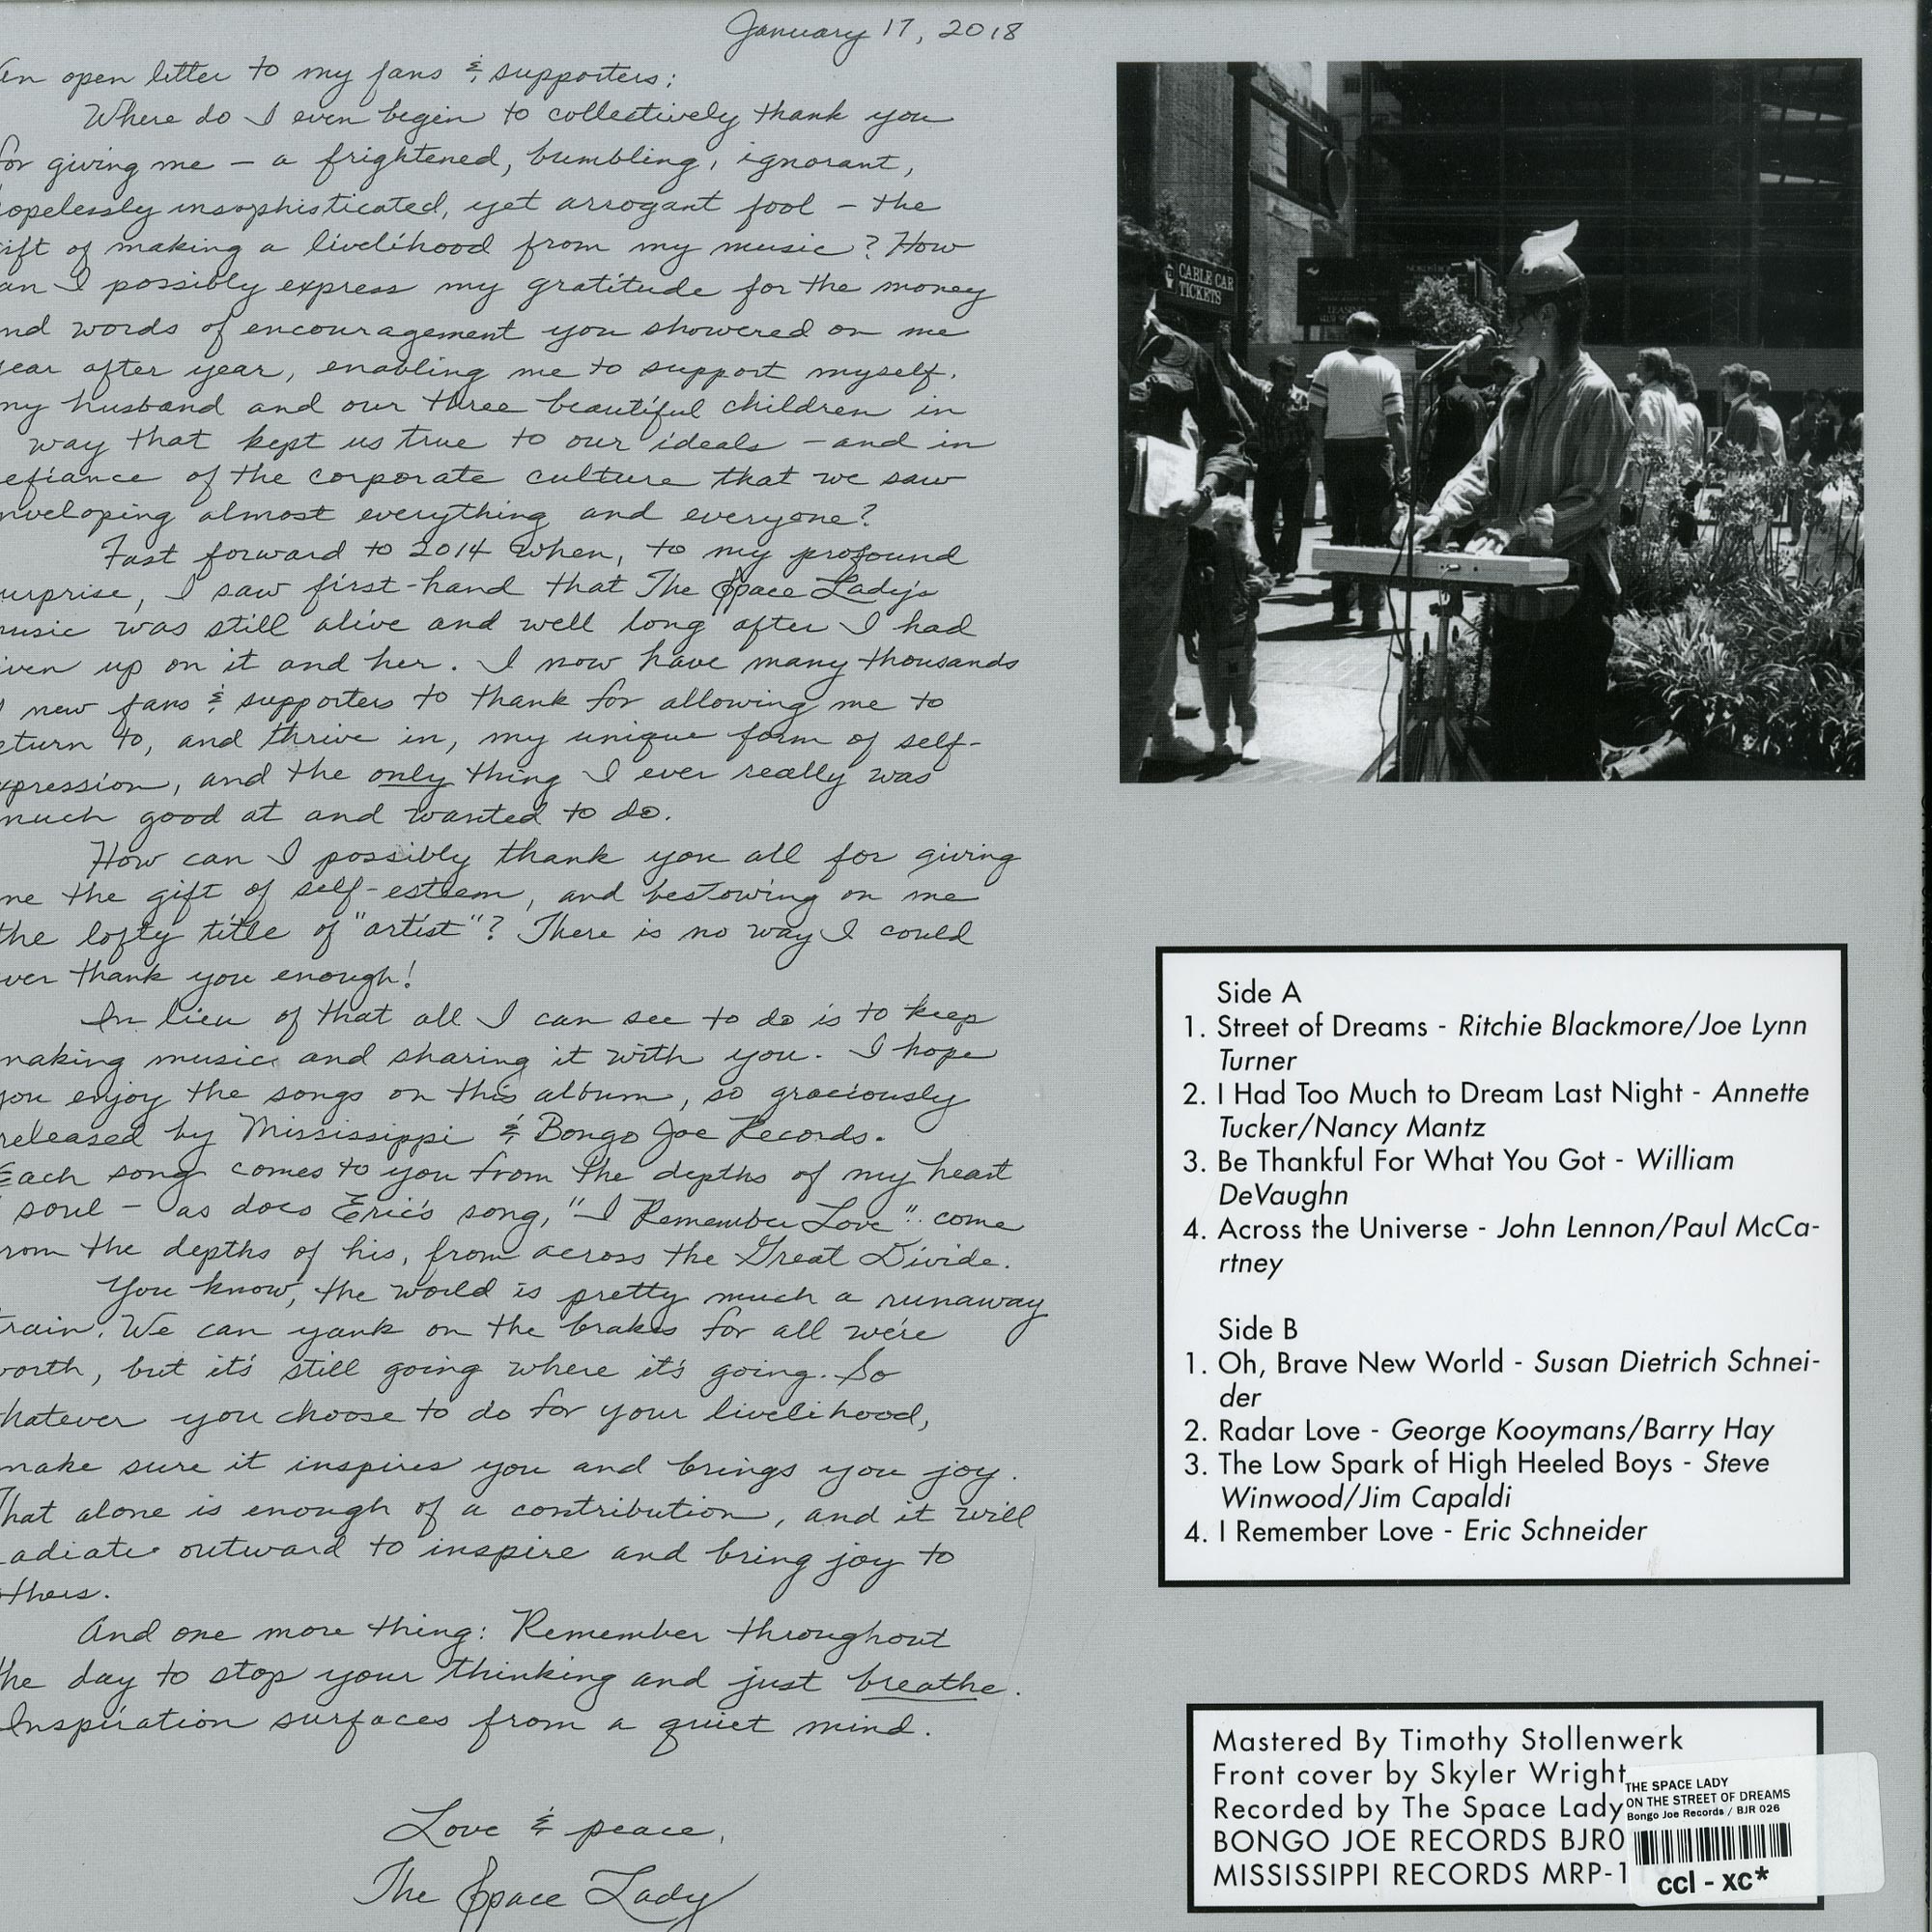 January 17, 2018
An open letter to my fans & supporters:
Where do I even begin to collectively thank you
for giving me – a frightened, bumbling, ignorant,
opelessly insophisticated, yet arrogant fool – the
ift of making a livelihood from my music? How
an I possibly express my gratitude for the money
nd words of encouragement you showered on me
ear after year, enabling me to support myself,
my husband and our three beautiful children in
way that kept us true to our ideals – and in
efiance of the corporate culture that we saw
nveloping almost everything and everyone?
Fast forward to 2014 when, to my profound
urprise, I saw first-hand that The Space Lady's
music was still alive and well long after I had
iven up on it and her. I now have many thousands
new fans & supporters to thank for allowing me to
eturn to, and thrive in, my unique form of self-
xpression, and the only thing I ever really was
much good at and wanted to do.
How can I possibly thank you all for giving
me the gift of self-esteem, and bestowing on me
the lofty title of "artist"? There is no way I could
ver thank you enough!
In lieu of that all I can see to do is to keep
making music and sharing it with you. I hope
you enjoy the songs on this album, so graciously
released by Mississippi & Bongo Joe Records.
Each song comes to you from the depths of my heart
soul – as does Eric's song, "I Remember Love" come
rom the depths of his, from across the Great Divide.
You know, the world is pretty much a runaway
train. We can yank on the brakes for all we're
worth, but it's still going where it's going. So
hatever you choose to do for your livelihood,
make sure it inspires you and brings you joy.
That alone is enough of a contribution, and it will
adiate outward to inspire and bring joy to
others.
And one more thing: Remember throughout
the day to stop your thinking and just breathe.
Inspiration surfaces from a quiet mind.
Love & peace,
The Space Lady
CABLE CAR
TICKETS
Side A
1. Street of Dreams - Ritchie Blackmore/Joe Lynn
Turner
2. I Had Too Much to Dream Last Night - Annette
Tucker/Nancy Mantz
3. Be Thankful For What You Got - William
DeVaughn
4. Across the Universe - John Lennon/Paul McCa-
rtney
Side B
1. Oh, Brave New World - Susan Dietrich Schnei-
der
2. Radar Love - George Kooymans/Barry Hay
3. The Low Spark of High Heeled Boys - Steve
Winwood/Jim Capaldi
4. I Remember Love - Eric Schneider
Mastered By Timothy Stollenwerk
Front cover by Skyler Wright
Recorded by The Space Lady
BONGO JOE RECORDS BJR0
MISSISSIPPI RECORDS MRP-1
THE SPACE LADY
ON THE STREET OF DREAMS
Bongo Joe Records / BJR 026
ccl - xc*